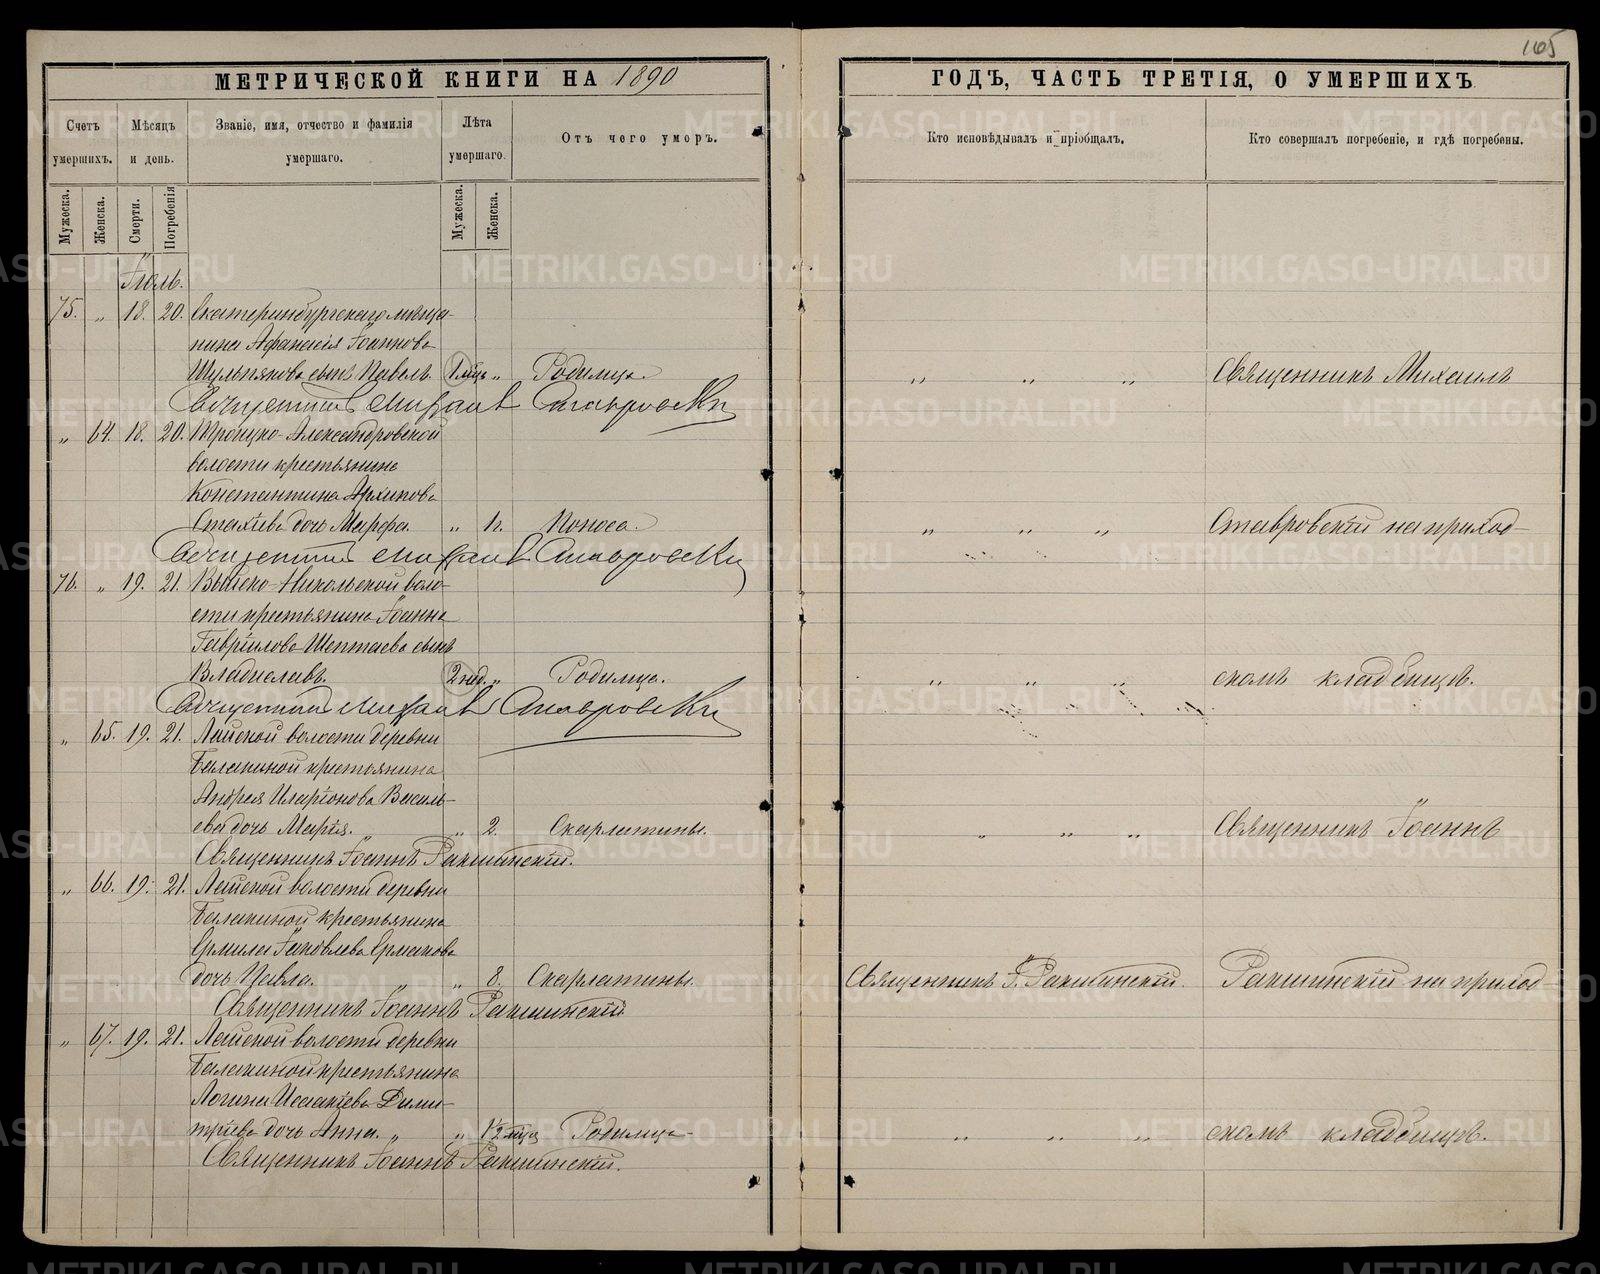 165
МЕТРИЧЕСКОЙ КНИГИ НА 1890
ГОДЪ, ЧАСТЬ ТРЕТІЯ, О УМЕРШИХЪ
Счетъ умершихъ.
Мѣсяцъ и день.
Званіе, имя, отчество и фамилія умершаго.
Лѣта умершаго.
Отъ чего умеръ.
Кто исповѣдывалъ и пріобщалъ.
Кто совершалъ погребеніе, и гдѣ погребены.
Мужеска.
Женска.
Смерти.
Погребенія
Мужеска.
Женска.
Іюль.
75. „ 18. 20. Екатеринбургскаго мѣща-
нина Афанасія Іоаннова
Шульпякова сынъ Павелъ. 1 мѣс. „ Родимца. „ „ „ Священникъ Михаилъ
Священникъ Михаилъ Ставровскій
„ 64. 18. 20. Троицко-Александровской
волости крестьянина
Константина Архипова
Стахіева дочь Марфа. „ 1 г. Поноса. „ „ „ Ставровскій на приход-
Священникъ Михаилъ Ставровскій
76. „ 19. 21. Выйско-Никольской воло-
сти крестьянина Іоанна
Гавріилова Шептаева сынъ
Владиславъ. 2 нед. „ Родимца. „ „ „ скомъ кладбищѣ.
Священникъ Михаилъ Ставровскій
„ 65. 19. 21. Лайской волости деревни
Балакиной крестьянина
Андрея Иларіонова Василь-
ева дочь Марія. „ „ 2. Скарлатины. „ „ „ Священникъ Іоаннъ
Священникъ Іоаннъ Ракшинскій.
„ 66. 19. 21. Лайской волости деревни
Балакиной крестьянина
Ермила Іаковлева Ермакова
дочь Павла. „ „ 8. Скарлатины. Священникъ І. Ракшинскій. Ракшинскій на приход-
Священникъ Іоаннъ Ракшинскій
„ 67. 19. 21. Лайской волости деревни
Балакиной крестьянина
Логина Исаакіева Дими-
тріева дочь Анна. „ „ 1½ мѣс. Родимца. „ „ „ скомъ кладбищѣ.
Священникъ Іоаннъ Ракшинскій.
METRIKI.GASO-URAL.RU